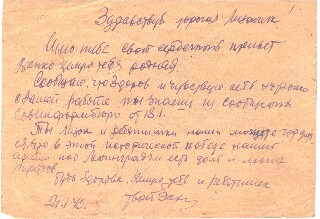 Здравствуй дорогая Лидочка!
Шлю тебе свой сердечный привет
целую тебя родная.
Сообщаю, что здоров и чувствую себя хорошо
о нашей работе ты знаешь из сообщения
Совинформбюро от 18.1.
Ты Лидок и ребятишки наши можете гордиться
что в этой исторической победе нашей
армии под Ленинградом есть доля и моих
трудов.
Будь здорова. Целую тебя и ребятишек
Твой